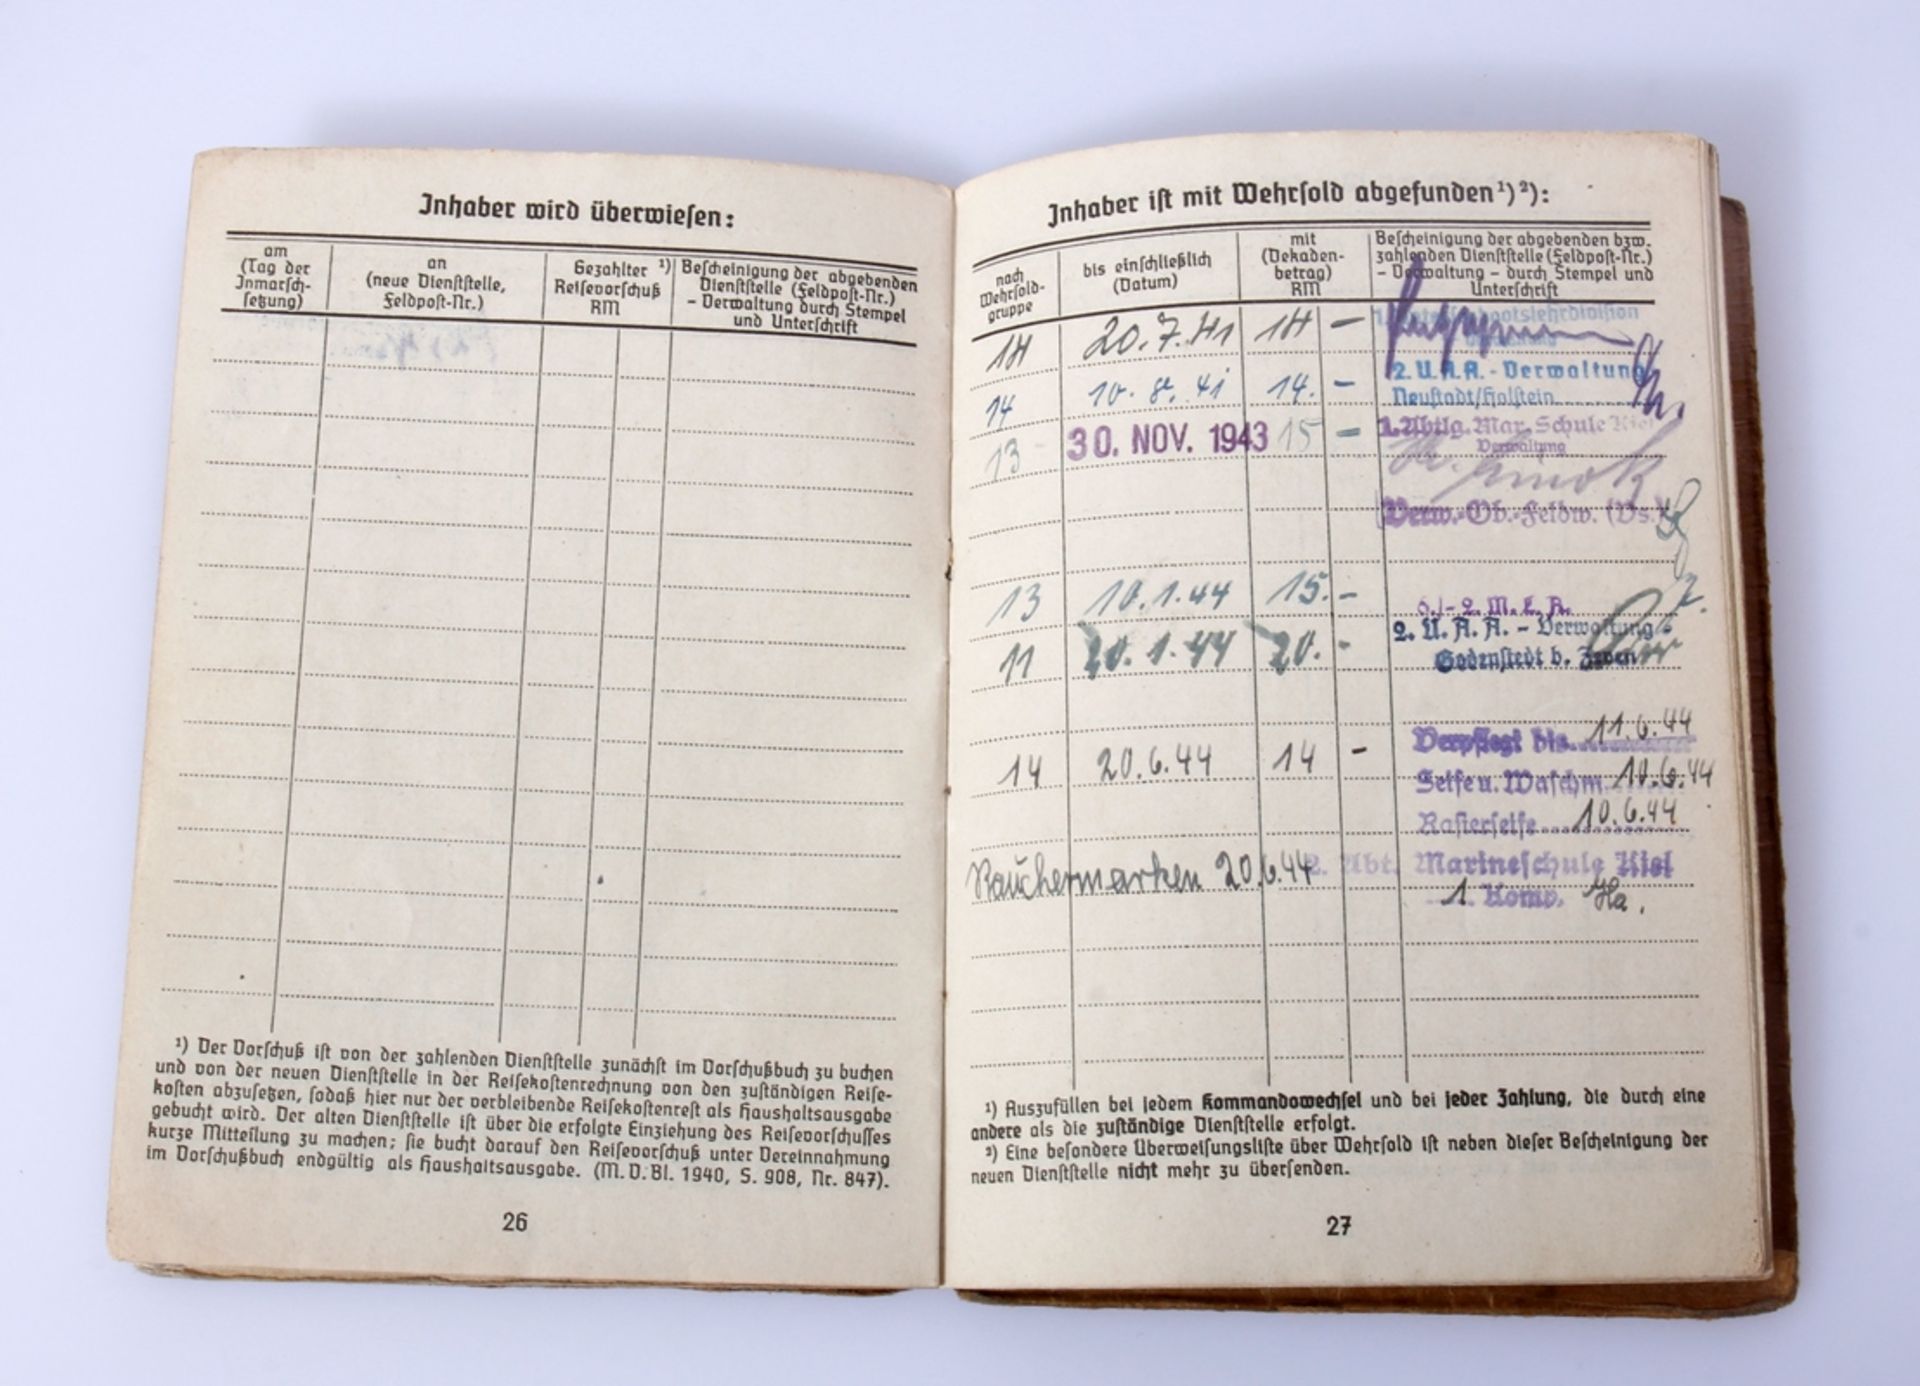 Inhaber wird überwiesen:
am
(Tag der
Inmarsch-
setzung)
an
(neue Dienststelle,
Feldpost-Nr.)
Gezahlter ¹)
Reisevorschuß
RM
Bescheinigung der abgebenden
Dienststelle (Feldpost-Nr.)
- Verwaltung durch Stempel
und Unterschrift
¹) Der Vorschuß ist von der zahlenden Dienststelle zunächst im Vorschußbuch zu buchen
und von der neuen Dienststelle in der Reisekostenrechnung von den zuständigen Reise-
kosten abzusetzen, sodaß hier nur der verbleibende Reisekostenrest als Haushaltsausgabe
gebucht wird. Der alten Dienststelle ist über die erfolgte Einziehung des Reisevorschusses
kurze Mitteilung zu machen; sie bucht darauf den Reisevorschuß unter Vereinnahmung
im Vorschußbuch endgültig als Haushaltsausgabe. (M. V. Bl. 1940, S. 908, Nr. 847).
26
Inhaber ist mit Wehrsold abgefunden¹)²):
nach
Wehrsold-
gruppe
bis einschließlich
(Datum)
mit
(Dekaden-
betrag)
RM
Bescheinigung der abgebenden bzw.
zahlenden Dienststelle (Feldpost-Nr.)
- Verwaltung - durch Stempel und
Unterschrift
14 20.7.41 14 -
14 10. 8. 41 14. - 2. U.A.A. - Verwaltung
Neustadt/Holstein
13 30. NOV. 1943 15 - 1. Abtlg. Mar. Schule Kiel
Verwaltung
Verw.-Ob.-Feldw. (Vs.)
13 10.1.44 15. - 6./- 2. M. E. A.
11 20.1.44 20. - 2. U. A. A. - Verwaltung -
Godenstedt b. Zeven
Verpflegt bis 11.6.44
14 20.6.44 14 - Seife u. Waschm. 10.6.44
Rasierseife 10.6.44
Rauchermarken 20.6.44 2. Abt. Marineschule Kiel
1. Komp. Ha.
¹) Auszufüllen bei jedem Kommandowechsel und bei jeder Zahlung, die durch eine
andere als die zuständige Dienststelle erfolgt.
²) Eine besondere Überweisungsliste über Wehrsold ist neben dieser Bescheinigung der
neuen Dienststelle nicht mehr zu übersenden.
27